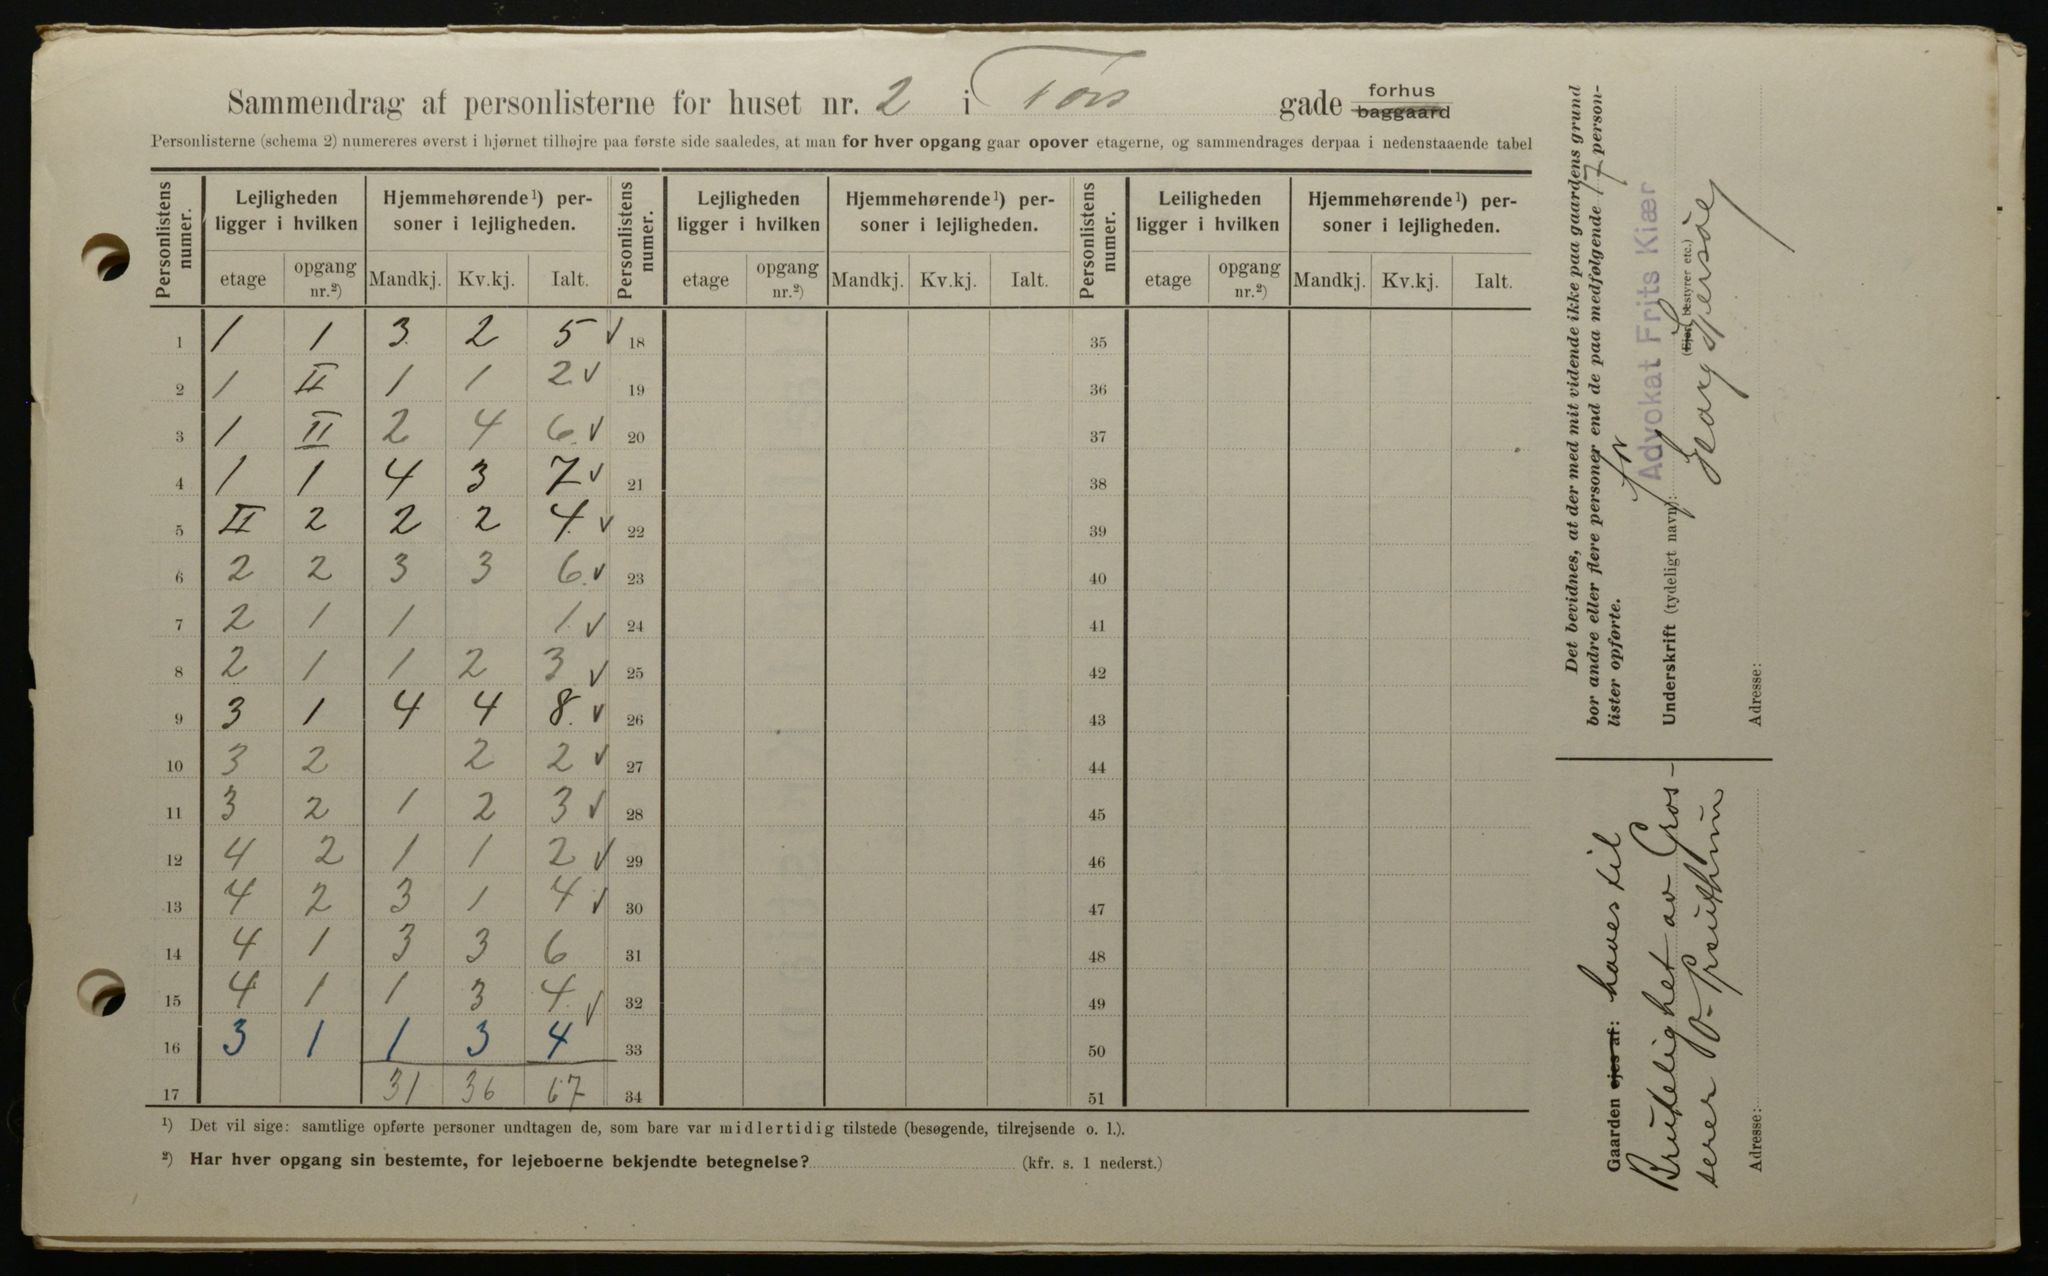 Sammendrag af personlisterne for huset nr. 2 i Tors gade forhus baggaard
Personlisterne (schema 2) numereres øverst i hjørnet tilhøjre paa første side saaledes, at man for hver opgang gaar opover etagerne, og sammendrages derpaa i nedenstaaende tabel
Personlistens numer. Lejligheden ligger i hvilken Hjemmehørende¹) personer i lejligheden. Personlistens numer. Lejligheden ligger i hvilken Hjemmehørende¹) personer i lejligheden. Personlistens numer. Leiligheden ligger i hvilken Hjemmehørende¹) personer i lejligheden.
etage opgang nr.²) Mandkj. Kv.kj. Ialt. etage opgang nr.²) Mandkj. Kv.kj. Ialt. etage opgang nr.²) Mandkj. Kv.kj. Ialt.
1 1 1 3 2 5 ✓ 18 35
2 1 II 1 1 2 ✓ 19 36
3 1 II 2 4 6 ✓ 20 37
4 1 1 4 3 7 ✓ 21 38
5 II 2 2 2 4 ✓ 22 39
6 2 2 3 3 6 ✓ 23 40
7 2 1 1 1 ✓ 24 41
8 2 1 1 2 3 ✓ 25 42
9 3 1 4 4 8 ✓ 26 43
10 3 2 2 2 ✓ 27 44
11 3 2 1 2 3 ✓ 28 45
12 4 2 1 1 2 ✓ 29 46
13 4 2 3 1 4 ✓ 30 47
14 4 1 3 3 6 31 48
15 4 1 1 3 4 ✓ 32 49
16 3 1 1 3 4 33 50
17 31 36 67 34 51
¹) Det vil sige: samtlige opførte personer undtagen de, som bare var midlertidig tilstede (besøgende, tilrejsende o. l.).
²) Har hver opgang sin bestemte, for lejeboerne bekjendte betegnelse? (kfr. s. 1 nederst.)
Det bevidnes, at der med mit vidende ikke paa gaardens grund
bor andre eller flere personer end de paa medfølgende 17 person-
lister opførte.
for
Advokat Frits Kiær
Underskrift (tydeligt navn):
(Ejer, bestyrer etc.)
Adresse:
Gaarden ejes af: haves til
Brukelighet av Gros-
serer
Adresse: